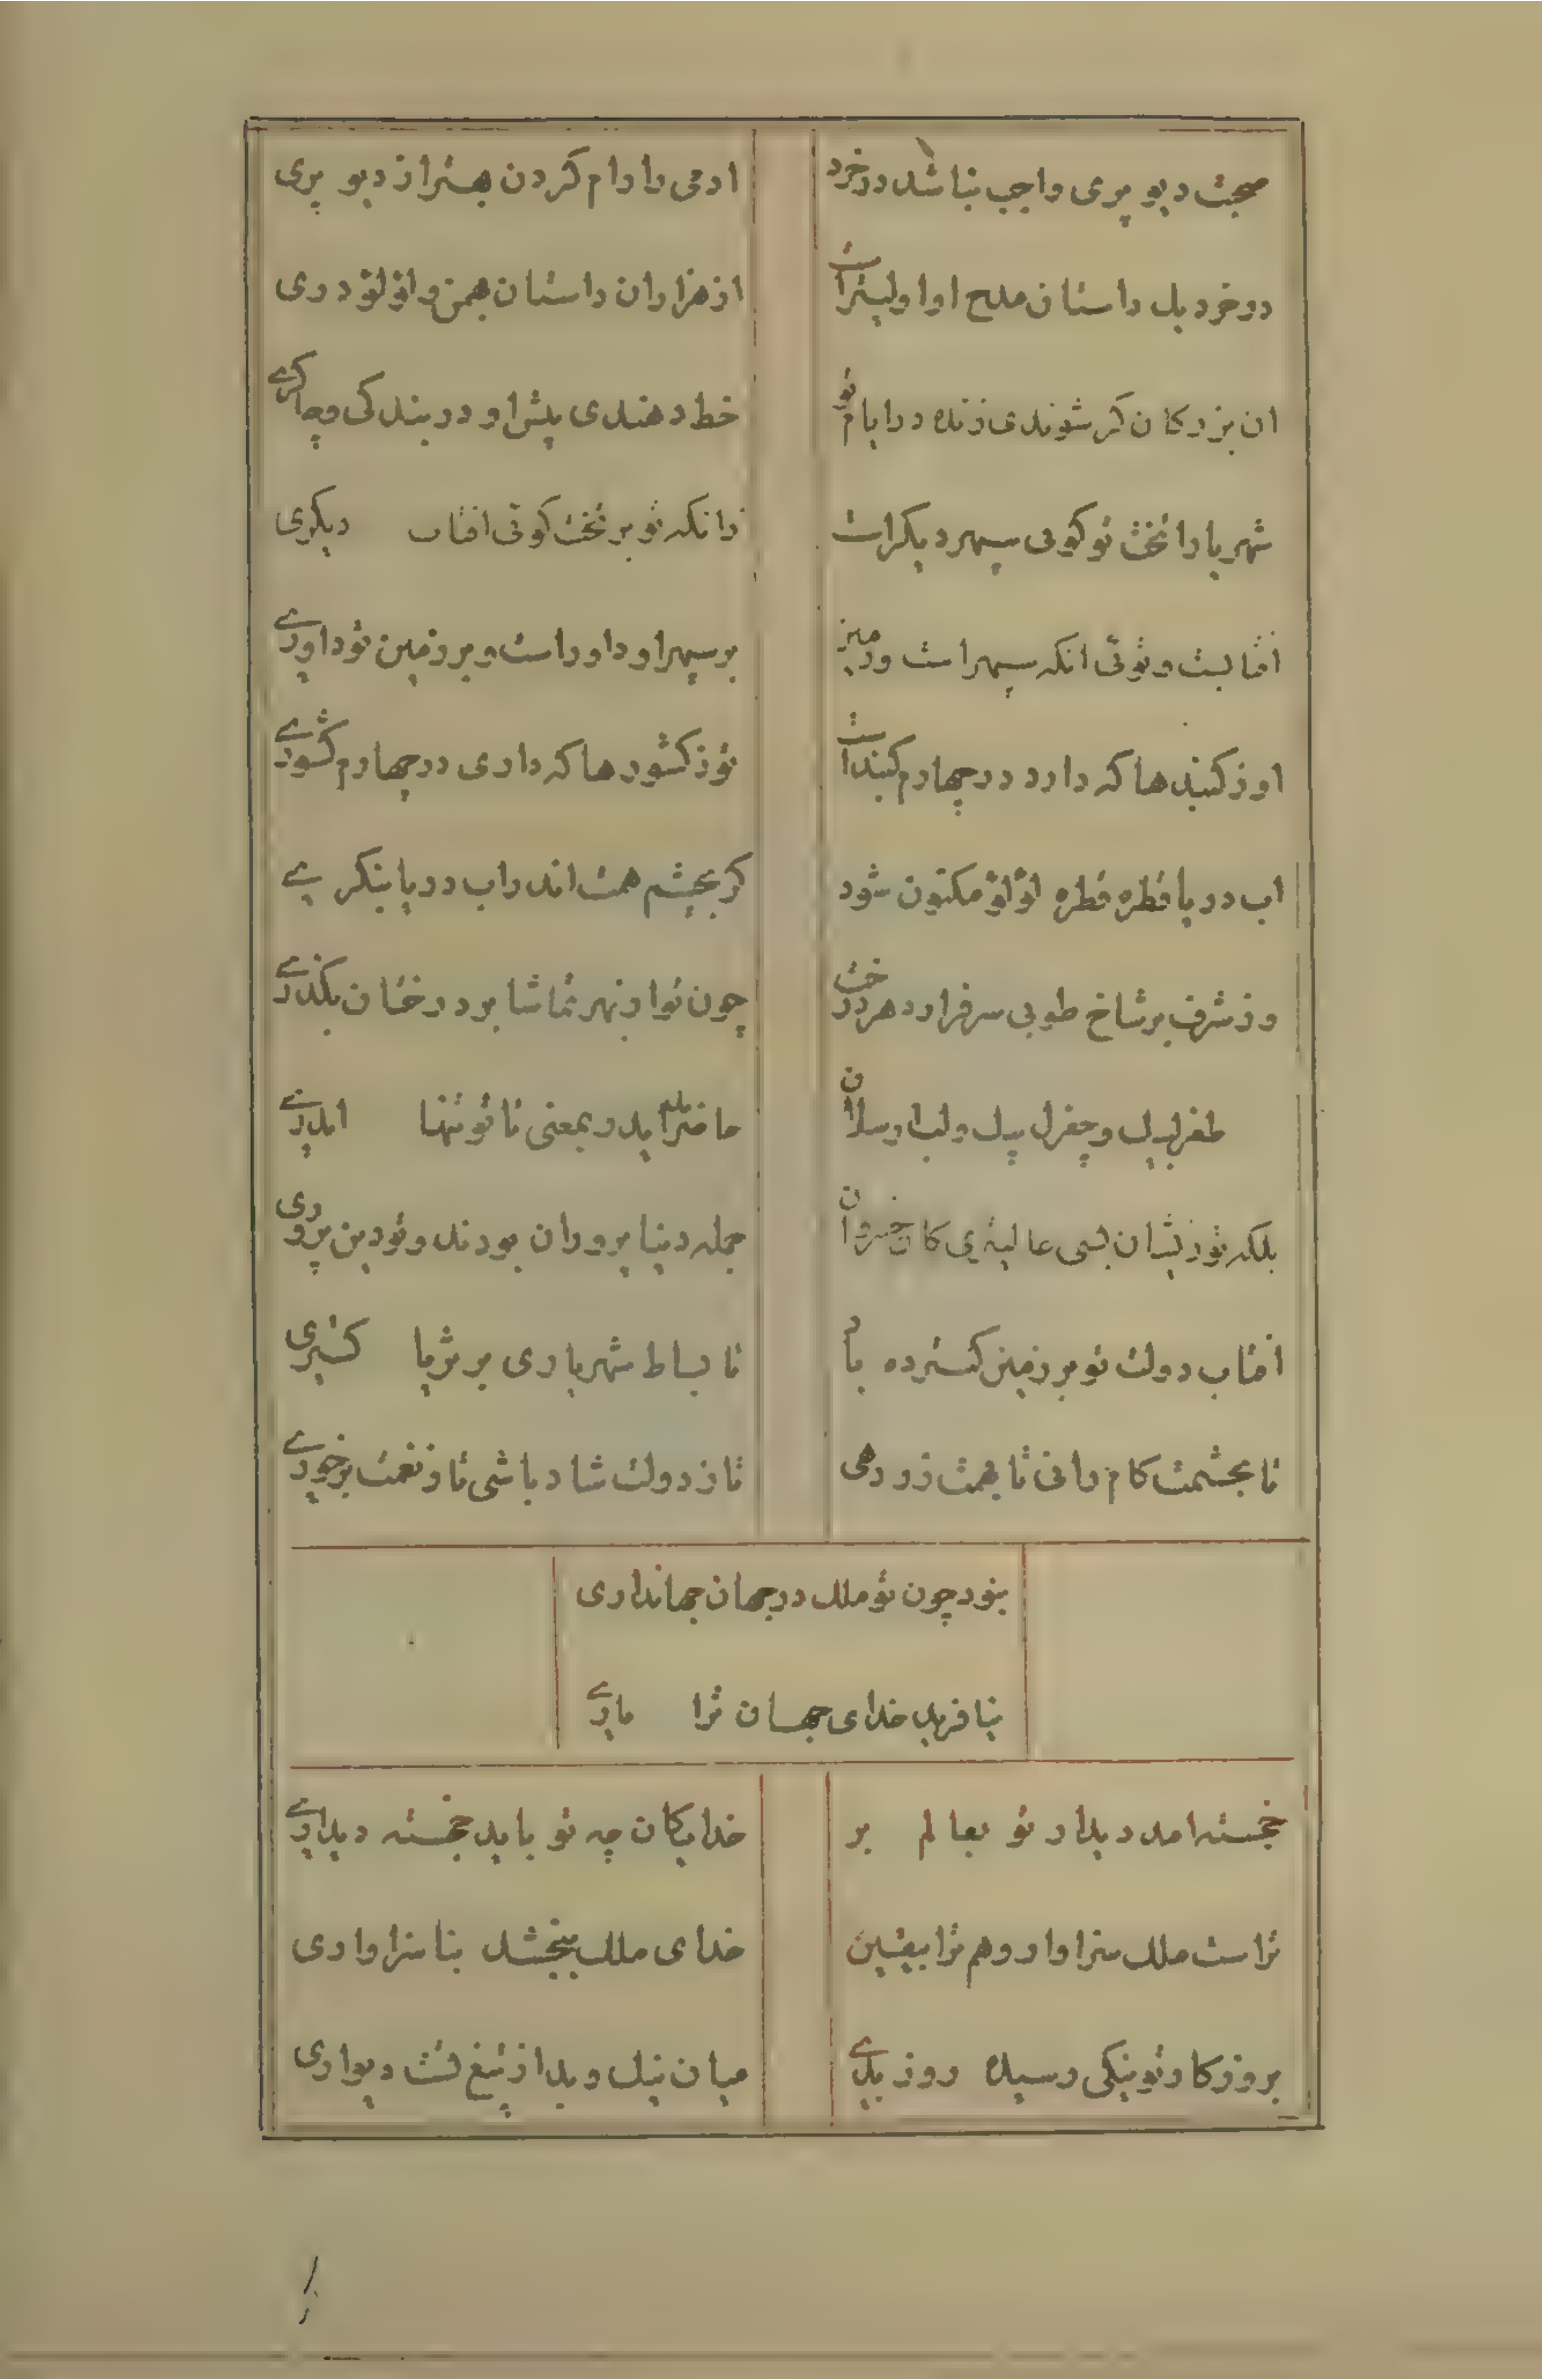 صحبت دیو پری واجب نباشد در خرد
ادمی را رام کردن بهتر از دیو پری
در خرد یک داستان مدح او اولیتر است
از هزاران داستان بهمن و
ان بزرکان کر شوندی زنده در ایام تو
خط دهندی پیش او در بندکی و چاکری
شهریارا تخت تو کوئی سپهر دیکر است
زانکه تو بر تخت کوئی افتاب دیکری
افتابست و توئی انکه سپهر است و زمین
بر سپهر او داور است و بر زمین تو داوری
او ز کنبدها که دارد در چهارم کنبد است
تو ز کشورها که داری در چهارم کشوری
اب در دریا قطره قطره لؤلؤ مکنون شود
کر بچشم همت اندر اب دریا بنکری
وز شرف بر شاخ طوبی سر فرازد هر درخت
چون تو از بهر تماشا بر درختان بکذری
طغرل بیک و چغرل بیک و الب ارسلان
حاضر اید و بمعنی تا تو تنها ایدری
بلکه تو زیشان بسی عالیتری کان خسروان
جمله دنیا پروران بودند و تو دین پروری
افتاب دولت تو بر زمین کسترده باد
تا بساط شهریاری بر ثریا کستری
تا بچشمت کام رانی تا بهمت زر دهی
تا ز دولت شاد باشی تا ز نعمت برخوری
نبود چون تو ملک در جهان جهانداری
نیافرید خدای جهان ترا یاری
خجسته امد دیدار تو بعالم بر
خدایکان چه تو باید خجسته دیداری
تراست ملک سزاوار و هم ترا بیقین
خدای ملک نبخشد بناسزاواری
بروزکار تو نیکی رسید و روز بدی
میان نیک و بد از تیغ تست دیواری